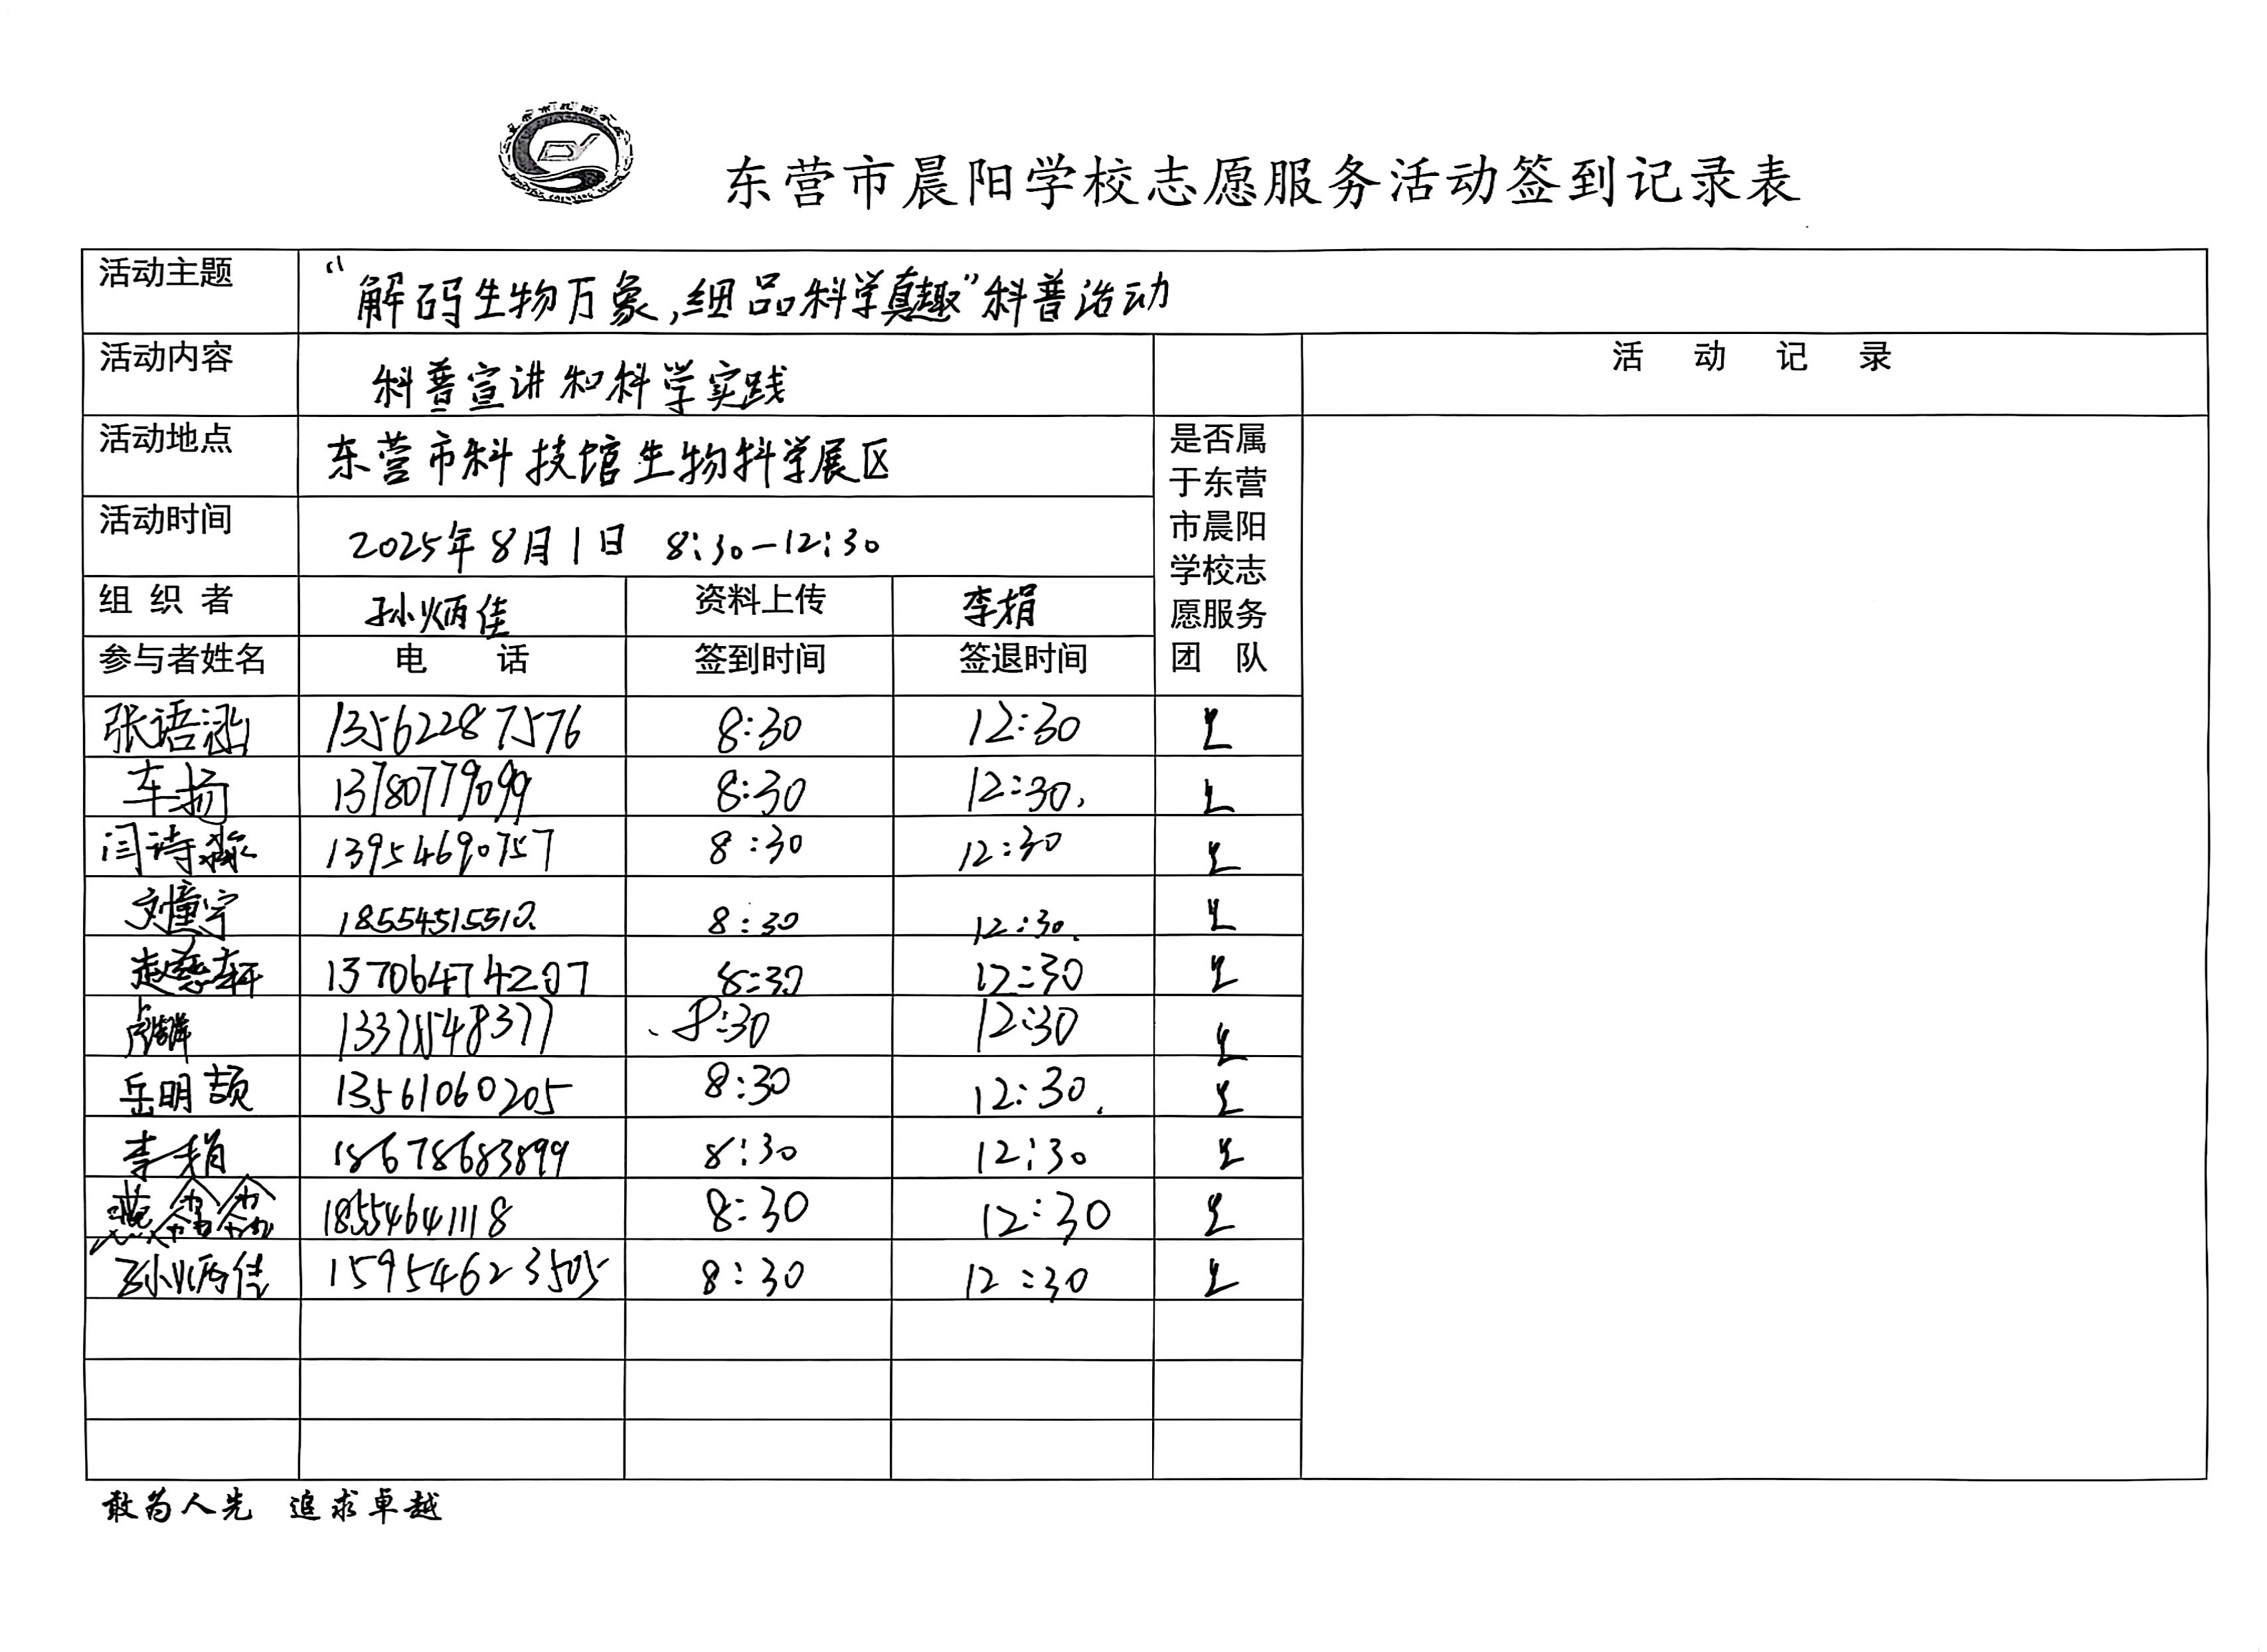 东营市晨阳学校志愿服务活动签到记录表
活动主题 “解码生物万象,细品科学真趣”科普活动
活动内容 科普宣讲和科学实践 活 动 记 录
活动地点 东营市科技馆生物科学展区
是否属于东营市晨阳学校志愿服务团 队
活动时间 2025年8月1日 8:30-12:30
组 织 者 孙炳佳 资料上传 李娟
参与者姓名 电 话 签到时间 签退时间
张语涵 13562287576 8:30 12:30 是
车扬 13780779099 8:30 12:30. 是
闫诗淼 13954690757 8:30 12:30 是
刘童宇 18554515510. 8:30 12:30. 是
赵慕轩 13706474207 8:30 12:30 是
8:30 12:30 是
岳明颉 13561060205 8:30 12:30. 是
李娟 18678683899 8:30 12:30 是
燕 18554641118 8:30 12:30 是
孙炳佳 15954623505 8:30 12:30 是
敢为人先 追求卓越